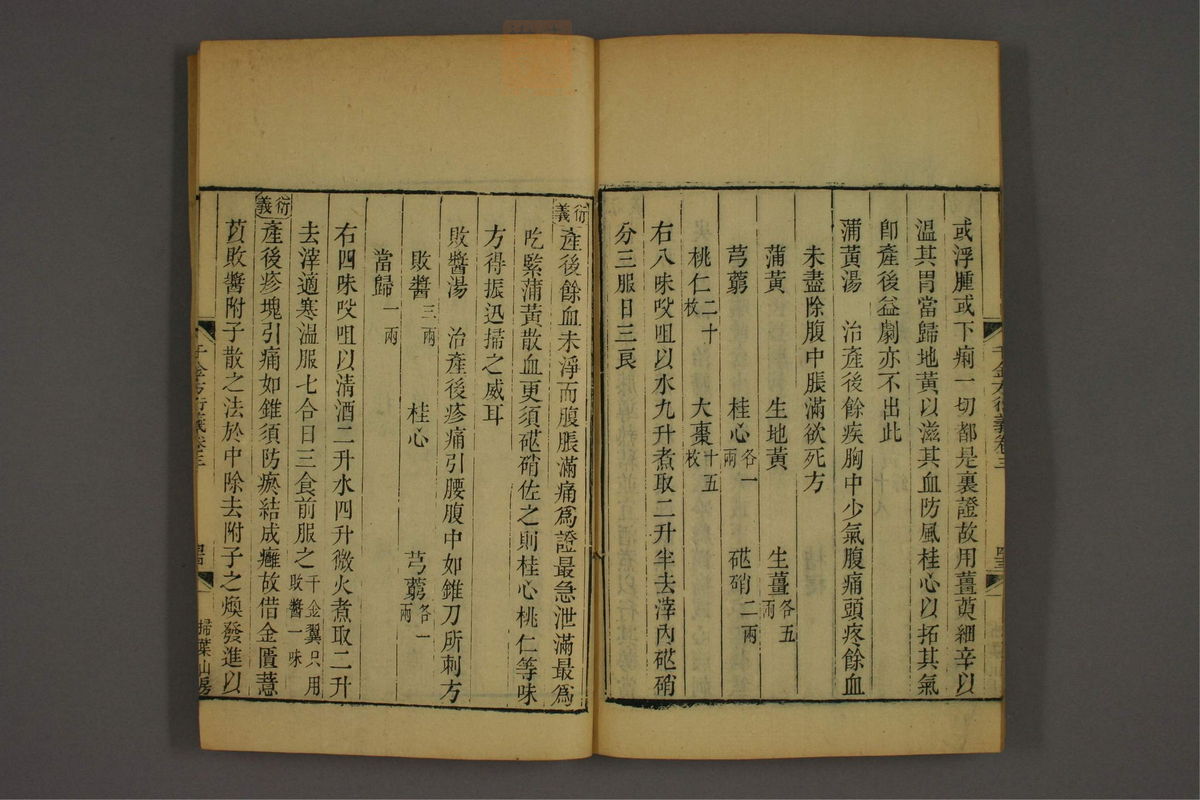 或浮腫或下痢一切都是裏證故用薑萸細辛以
溫其胃當歸地黃以滋其血防風桂心以拓其氣
卽產後益劇亦不出此
蒲黃湯　治產後餘疾胸中少氣腹痛頭疼餘血
未盡除腹中脹滿欲死方
蒲黃　生地黃　生薑各五兩
芎藭　桂心各一兩　硭硝二兩
桃仁二十枚　大棗十五枚
右八味㕮咀以水九升煮取二升半去滓內硭硝
分三服日三良
千金方衍義卷三
衍義
產後餘血未淨而腹脹滿痛爲證最急泄滿最爲
吃緊蒲黃散血更須硭硝佐之則桂心桃仁等味
方得振迅掃之威耳
敗醬湯　治產後疹痛引腰腹中如錐刀所刺方
敗醬三兩　桂心　芎藭各一兩
當歸一兩
右四味㕮咀以清酒二升水四升微火煮取二升
去滓適寒溫服七合日三食前服之千金翼只用敗醬一味
衍義
產後疹塊引痛如錐須防瘀結成癰故借金匱薏
苡敗醬附子散之法於中除去附子之煥發進以
千金方衍義卷三
掃葉山房